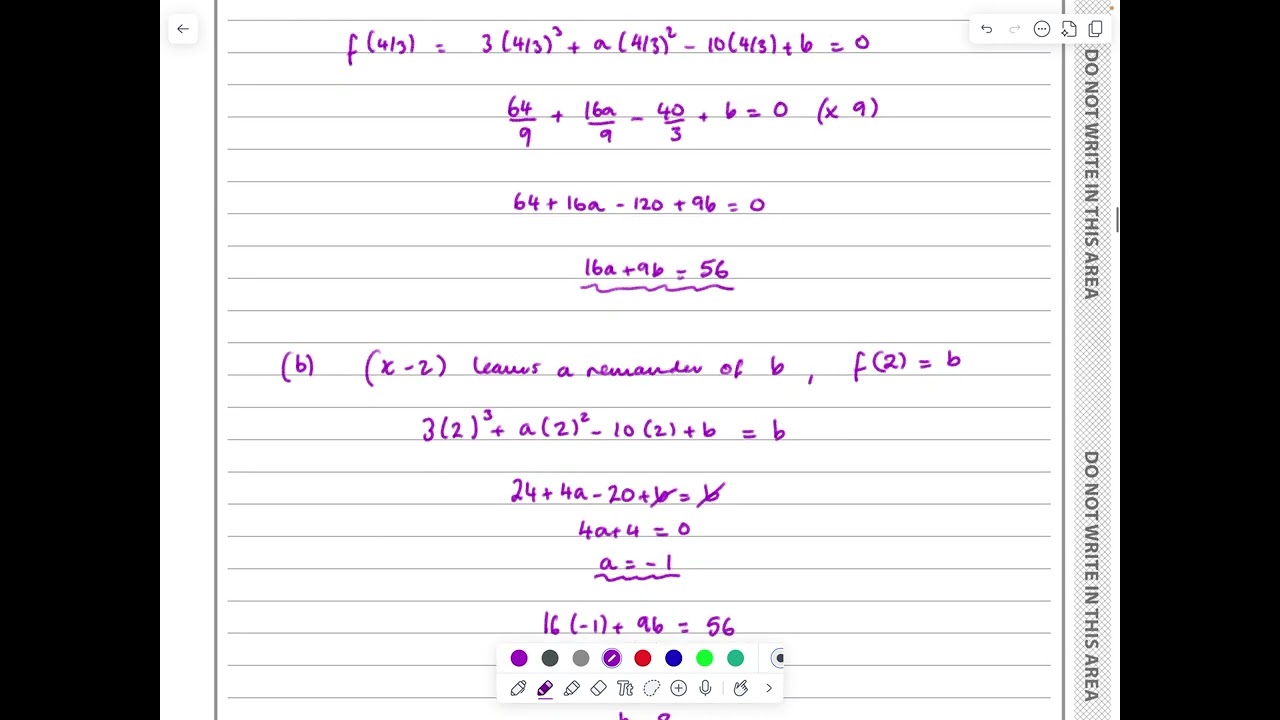 f(4/3) = 3(4/3)³ + a(4/3)² - 10(4/3) + b = 0
64/9 + 16a/9 - 40/3 + b = 0 (x 9)
64 + 16a - 120 + 9b = 0
16a + 9b = 56
(b) (x - 2) leaves a remainder of b, f(2) = b
3(2)³ + a(2)² - 10(2) + b = b
24 + 4a - 20 + b = b
4a + 4 = 0
a = -1
16(-1) + 9b = 56
Tt
DO NOT WRITE IN THIS AREA
DO NOT WRITE IN THIS AREA